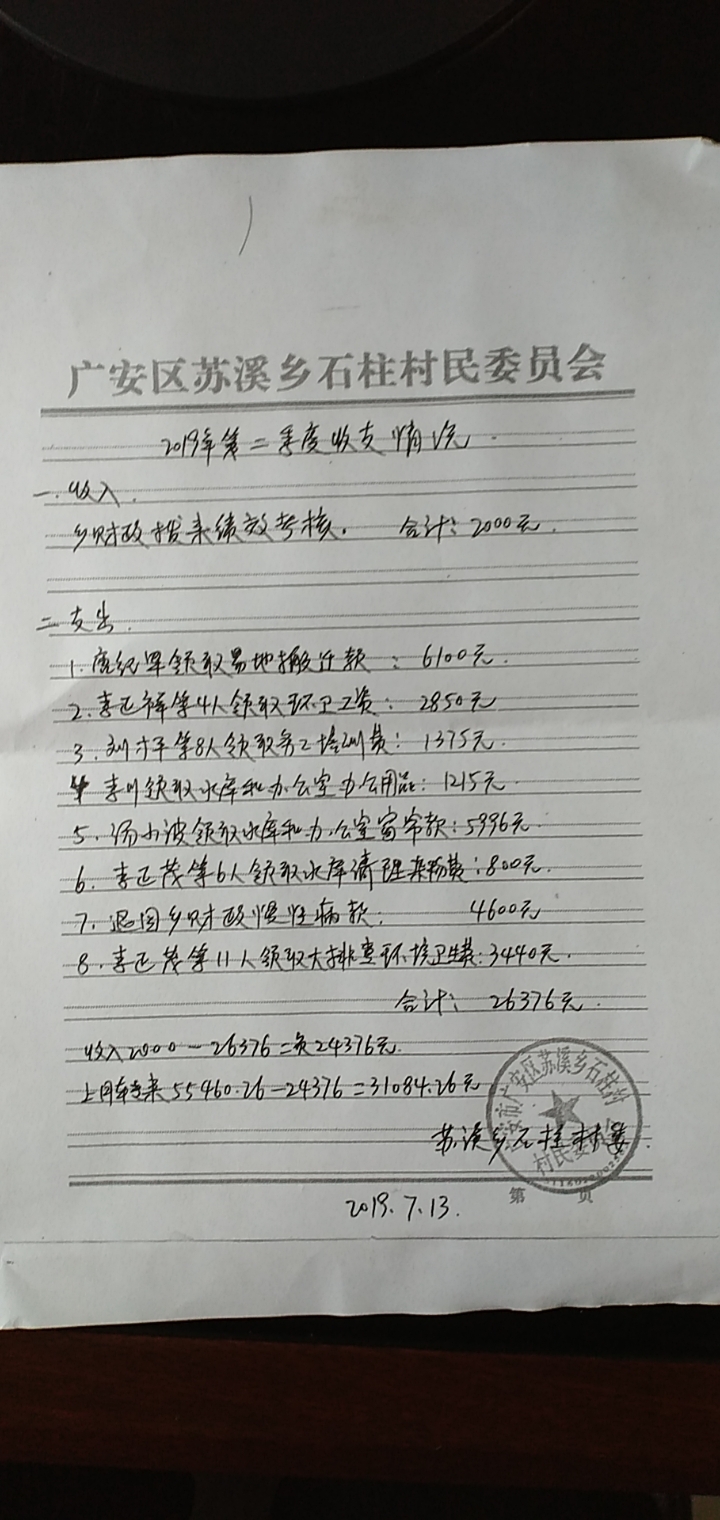 广安区苏溪乡石柱村民委员会
2019年第二季度收支情况.
一.收入.
乡财政拨来绩效考核. 合计:2000元.
二支出.
1.唐纪军领取易地搬迁款:6100元.
2.李正祥等4人领取环卫工资:2850元
3.刘才平等8人领取务工培训费:1375元.
4 李川领取水库和办公室办公用品:1215元.
5.汤小波领取水库和办公室窗帘款:5996元.
6.李正茂等6人领取水库清理杂物费:800元.
7.退回乡财政慢性病款: 4600元
8.李正茂等11人领取大排查环境卫生费:3440元.
合计: 26376元.
收入2000-26376=负24376元.
上月存来55460.26-24376=31084.26元
苏溪乡石柱村委
安市广安区苏溪乡石柱村
村民委员会
第 页
2019.7.13.